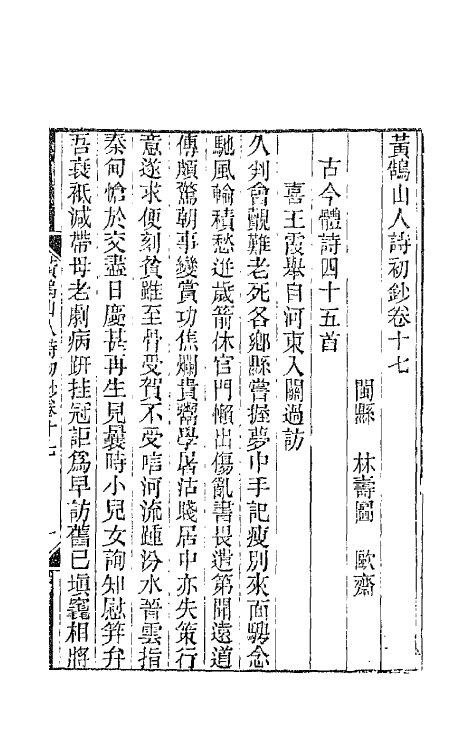 黃鵠山人詩初鈔卷十七
閩縣　林壽圖　歐齋
古今體詩四十五首
喜王霞舉自河東入關過訪
久判會覿難老死各鄉縣嘗握夢中手記瘦別來面騁念
馳風輪積愁迸歲箭休官門懶出傷亂書畏遣第聞遠道
傳頗驚朝事變賞功焦爛貴鬻學屠沽賤居中亦失策行
意遂求便刻貧雖至骨受賀不受唁河流踵汾水晉雲指
秦甸愴於交盡日慶甚再生見曩時小兒女詢知慰笄弁
吾衰祇減帶母老劇病跰挂冠詎爲早訪舊已塡竁相將
黃鵠山人詩初鈔卷十七　一